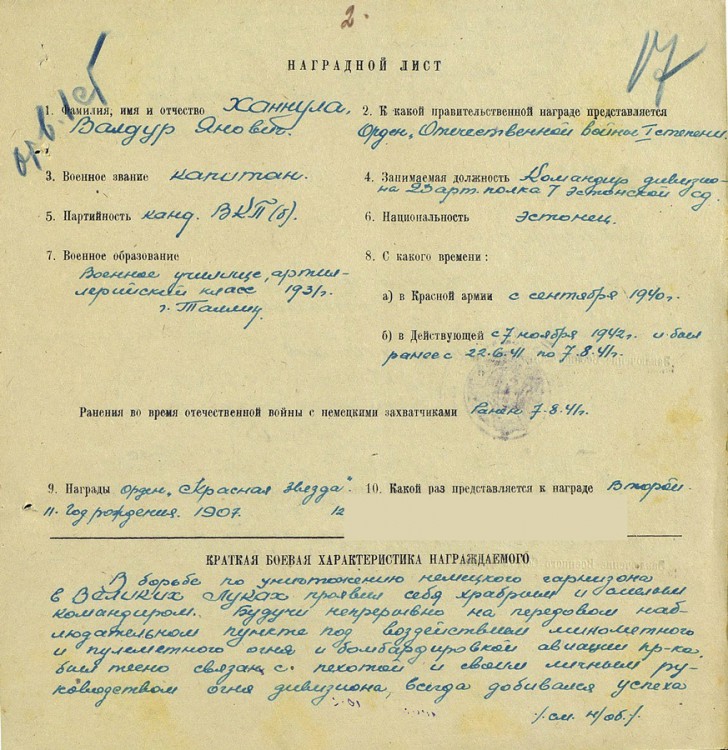 2.
17
НАГРАДНОЙ ЛИСТ
1. Фамилия, имя и отчество Ханнула,
Валдур Янович.
2. К какой правительственной награде представляется
Орден „Отечественной войны I степени.
3. Военное звание капитан.
4. Занимаемая должность Командир дивизио-
на 23 арт. полка 7 Эстонской сд.
5. Партийность канд. ВКП(б).
6. Национальность эстонец.
7. Военное образование
Военное училище, артил-
лерийский класс 1931г.
г. Таллин
8. С какого времени:
а) в Красной армии с сентября 1940г.
б) в Действующей с 7 ноября 1942г. и был
ранее с 22.6.41 по 7.8.41г.
Ранения во время отечественной войны с немецкими захватчиками Ранен 7.8.41г.
9. Награды орден „Красная звезда".
10. Какой раз представляется к награде Второй
11. Год рождения. 1907.
12
КРАТКАЯ БОЕВАЯ ХАРАКТЕРИСТИКА НАГРАЖДАЕМОГО
В борьбе по уничтожению немецкого гарнизона
в Великих Луках проявил себя храбрым и смелым
командиром. Будучи непрерывно на передовом наб-
людательном пункте под воздействием минометного
и пулеметного огня и бомбардировкой авиации пр-ка,
был тесно связан с пехотой и своим личным ру-
ководством огня дивизиона, всегда добивался успеха
/см. н/об./